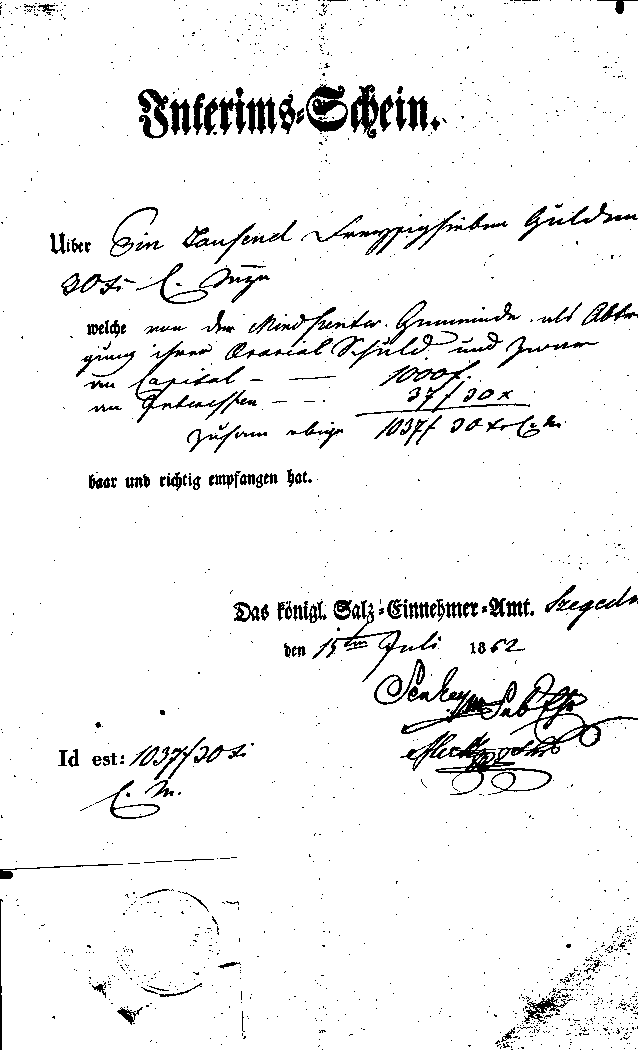 Interims-Schein.
Uiber Ein Tausend Dreyssigsieben Gulden
30 xr C. Münze
welche von der Mindszenter Gemeinde als Abtra
gung ihrer Ararial Schuld und zwar
an Capital — — 1000 f.
an Interessen — — 37 f 30 x
zusam obige 1037 f 30 xr C. M.
baar und richtig empfangen hat.
Das königl. Salz-Einnehmer-Amt. Szegedin
den 15ten Juli 1862
Id est: 1037 f 30 xr
C. M.